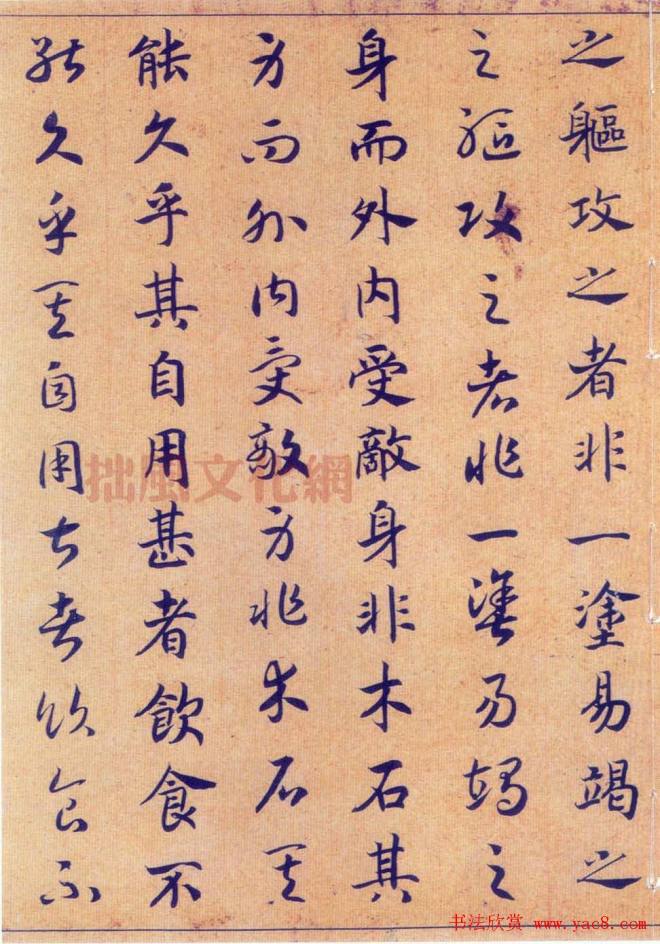 之軀攻之者非一塗易竭之
之軀攻之者非一塗易竭之
身而外内受敵身非木石其
身而外内受敵身非木石其
能久乎其自用甚者飲食不
能久乎其自用甚者飲食不
拙風文化網
书法欣赏 www.yac8.com